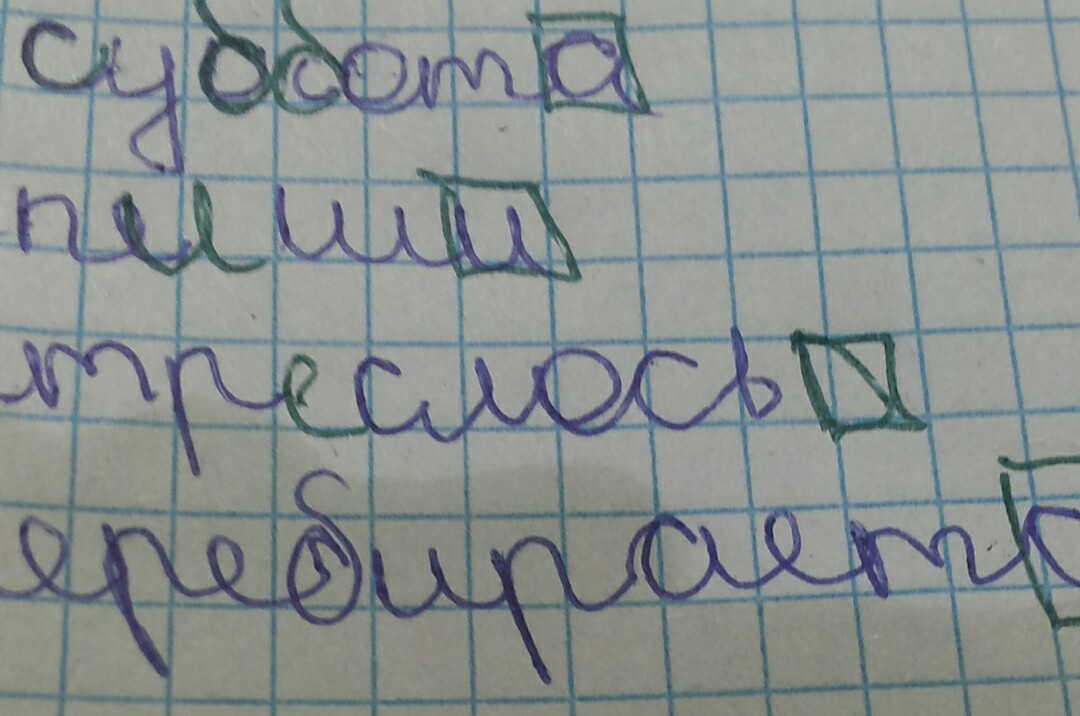 суббота
пиши
треслось
еребираетс